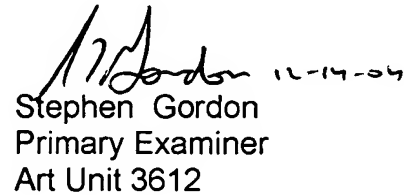 Gordon 12-14-04
Stephen Gordon
Primary Examiner
Art Unit 3612